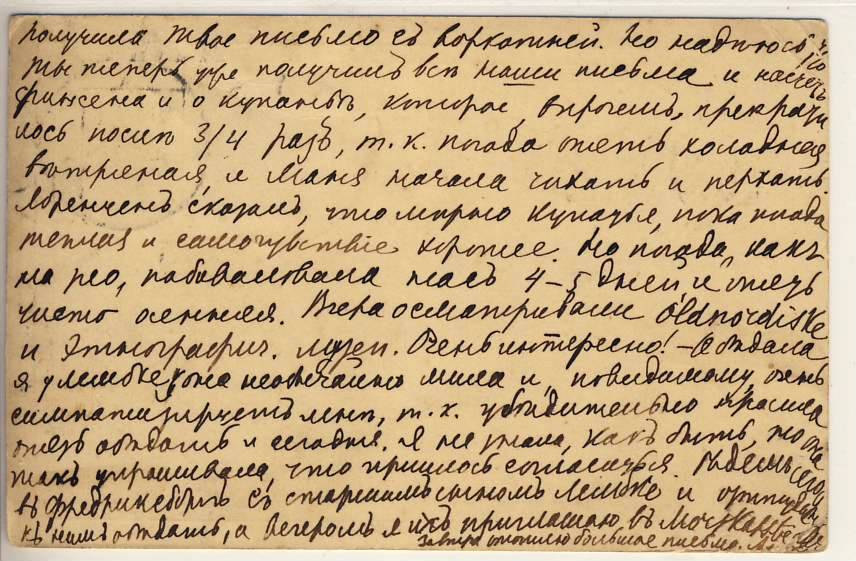 получила твое письмо съ воркотней. Но надѣюсь, что
ты теперь уже получилъ всѣ наши письма и насчетъ
и о купаньѣ, которое, впрочемъ, прекрати
лось послѣ 3/4 разъ, т. к. погода опять холодная
вѣтреная и Маня начала чихать и перхать.
сказалъ, что можно купаться, пока погода
теплая и самочувствіе хорошее. Но погода, какъ
на зло, побаловала насъ 4-5 дней, и опять
чисто осенняя. Вчера осматривали Oldnordiske
и Этнографич. музеи. Очень интересно! - Обѣдала
я у она необычайно мила и, повидимому, очень
симпатизируетъ мнѣ, т. к. убѣдительно просила
опять обѣдать и сегодня. Я не знала, какъ быть, но она
такъ упрашивала, что пришлось согласиться. Ѣдемъ
въ Фредриксборгъ съ старшимъ сыномъ и
къ нимъ обѣдать, а вечеромъ я ихъ приглашаю въ
Завтра отошлю большое письмо.